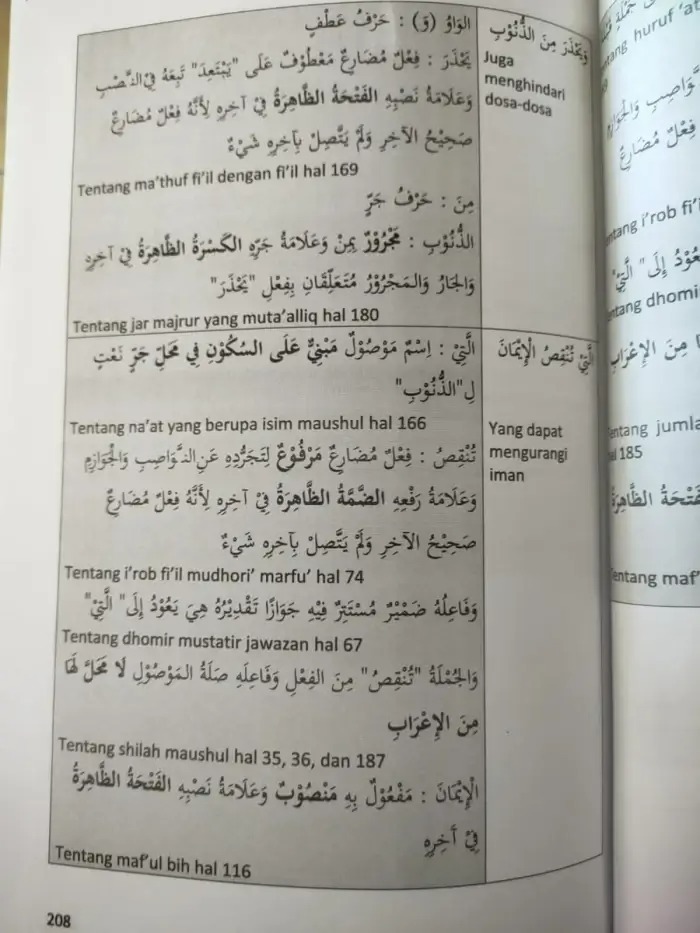 وَيَحْذَرَ مِنَ الذُّنُوْبِ
Juga
menghindari
dosa-dosa
الوَاوُ (وَ) : حَرْفُ عَطْفٍ
يَحْذَرَ : فِعْلٌ مُضَارِعٌ مَعْطُوْفٌ عَلَى "يَبْتَعِدَ" تَبِعَهُ فِيْ النَّصْبِ
وَعَلَامَةُ نَصْبِهِ الفَتْحَةُ الظَّاهِرَةُ فِيْ آخِرِهِ لِأَنَّهُ فِعْلٌ مُضَارِعٌ
صَحِيْحُ الآخِرِ وَلَمْ يَتَّصِلْ بِآخِرِهِ شَيْءٌ
Tentang ma'thuf fi'il dengan fi'il hal 169
مِنَ : حَرْفُ جَرٍّ
الذُّنُوْبِ : مَجْرُوْرٌ بِمِنْ وَعَلَامَةُ جَرِّهِ الكَسْرَةُ الظَّاهِرَةُ فِيْ آخِرِهِ
وَالجَارُ وَالمَجْرُوْرُ مُتَعَلِّقَانِ بِفِعْلِ "يَحْذَرَ"
Tentang jar majrur yang muta'alliq hal 180
الَّتِيْ تُنْقِصُ الْإِيْمَانَ
Yang dapat
mengurangi
iman
الَّتِيْ : اِسْمٌ مَوْصُوْلٌ مَبْنِيٌّ عَلَى السُّكُوْنِ فِي مَحَلِّ جَرٍّ نَعْتٍ
لِ"الذُّنُوْبِ"
Tentang na'at yang berupa isim maushul hal 166
تُنْقِصُ : فِعْلٌ مُضَارِعٌ مَرْفُوْعٌ لِتَجَرُّدِهِ عَنِ النَّوَاصِبِ وَالْجَوَازِمِ
وَعَلَامَةُ رَفْعِهِ الضَّمَّةُ الظَّاهِرَةُ فِيْ آخِرِهِ لِأَنَّهُ فِعْلٌ مُضَارِعٌ
صَحِيْحُ الآخِرِ وَلَمْ يَتَّصِلْ بِآخِرِهِ شَيْءٌ
Tentang i'rob fi'il mudhori' marfu' hal 74
وَفَاعِلُهُ ضَمِيْرٌ مُسْتَتِرٌ فِيْهِ جَوَازًا تَقْدِيْرُهُ هِيَ يَعُوْدُ إِلَى" الَّتِيْ"
Tentang dhomir mustatir jawazan hal 67
وَالجُمْلَةُ "تُنْقِصُ" مِنَ الفِعْلِ وَفَاعِلِهِ صِلَةُ المَوْصُوْلِ لَا مَحَلَّ لَهَا
مِنَ الإِعْرَابِ
Tentang shilah maushul hal 35, 36, dan 187
الْإِيْمَانَ : مَفْعُوْلٌ بِهِ مَنْصُوْبٌ وَعَلَامَةُ نَصْبِهِ الفَتْحَةُ الظَّاهِرَةُ
فِيْ آخِرِهِ
Tentang maf'ul bih hal 116
208
huruf
فِعْلٌ مُضَارِعٌ
i'rob
يَعُوْدُ إِلَى" الَّتِيْ"
dhomir
مِنَ الإِعْرَابِ
185